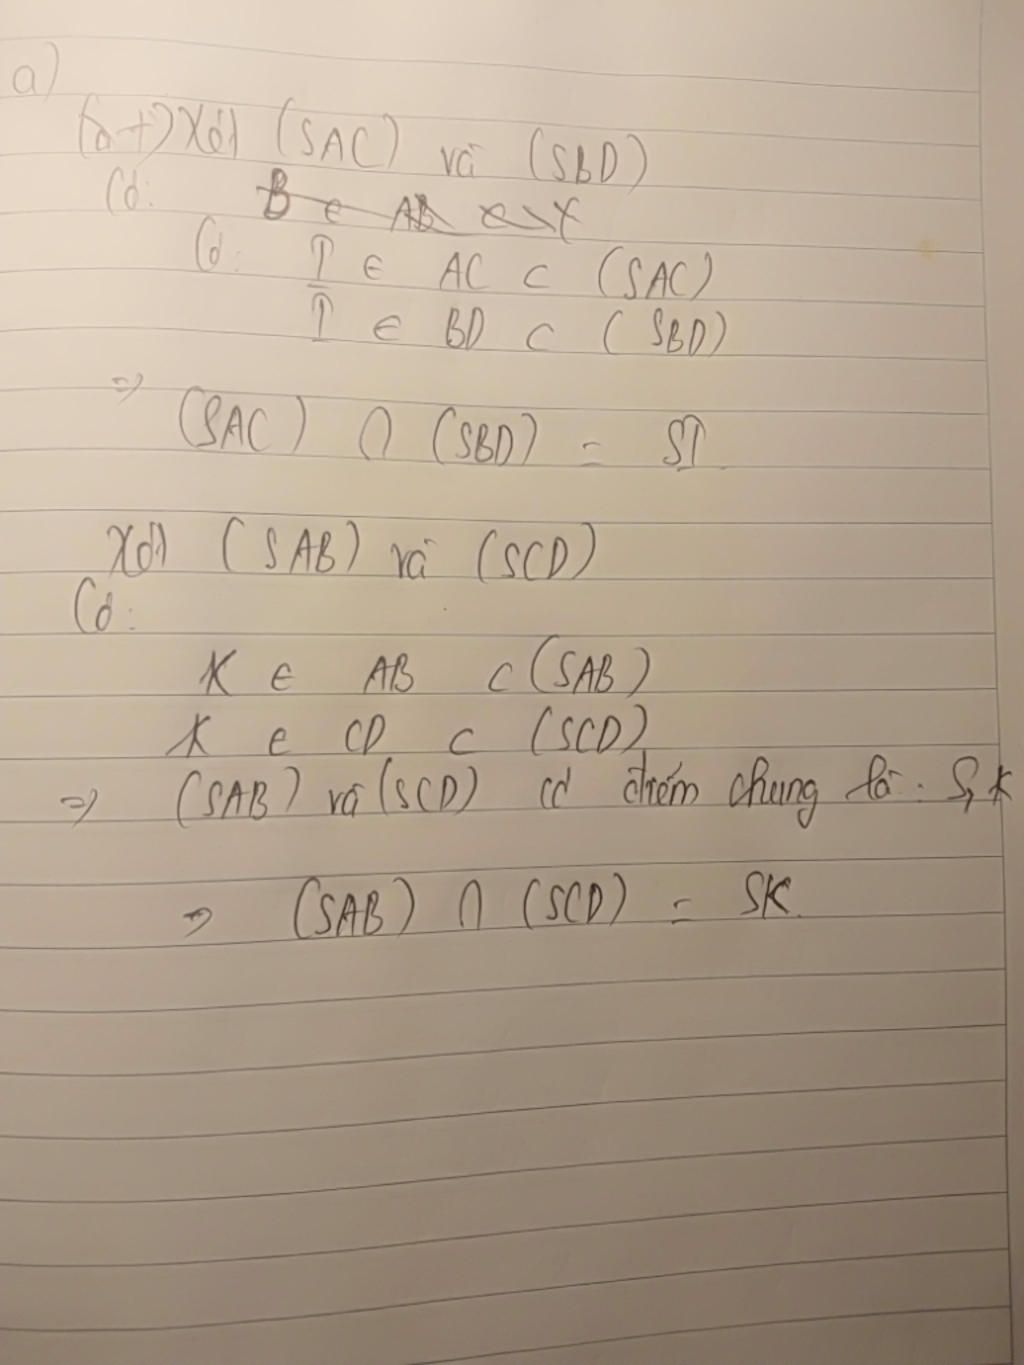 a)
(a+) Xét (SAC) và (SBD)
Có:
Có: I ∈ AC ⊂ (SAC)
I ∈ BD ⊂ (SBD)
⇒ (SAC) ∩ (SBD) = SI
Xét (SAB) và (SCD)
Có:
K ∈ AB ⊂ (SAB)
K ∈ CD ⊂ (SCD)
⇒ (SAB) và (SCD) có điểm chung là: S, K
⇒ (SAB) ∩ (SCD) = SK.